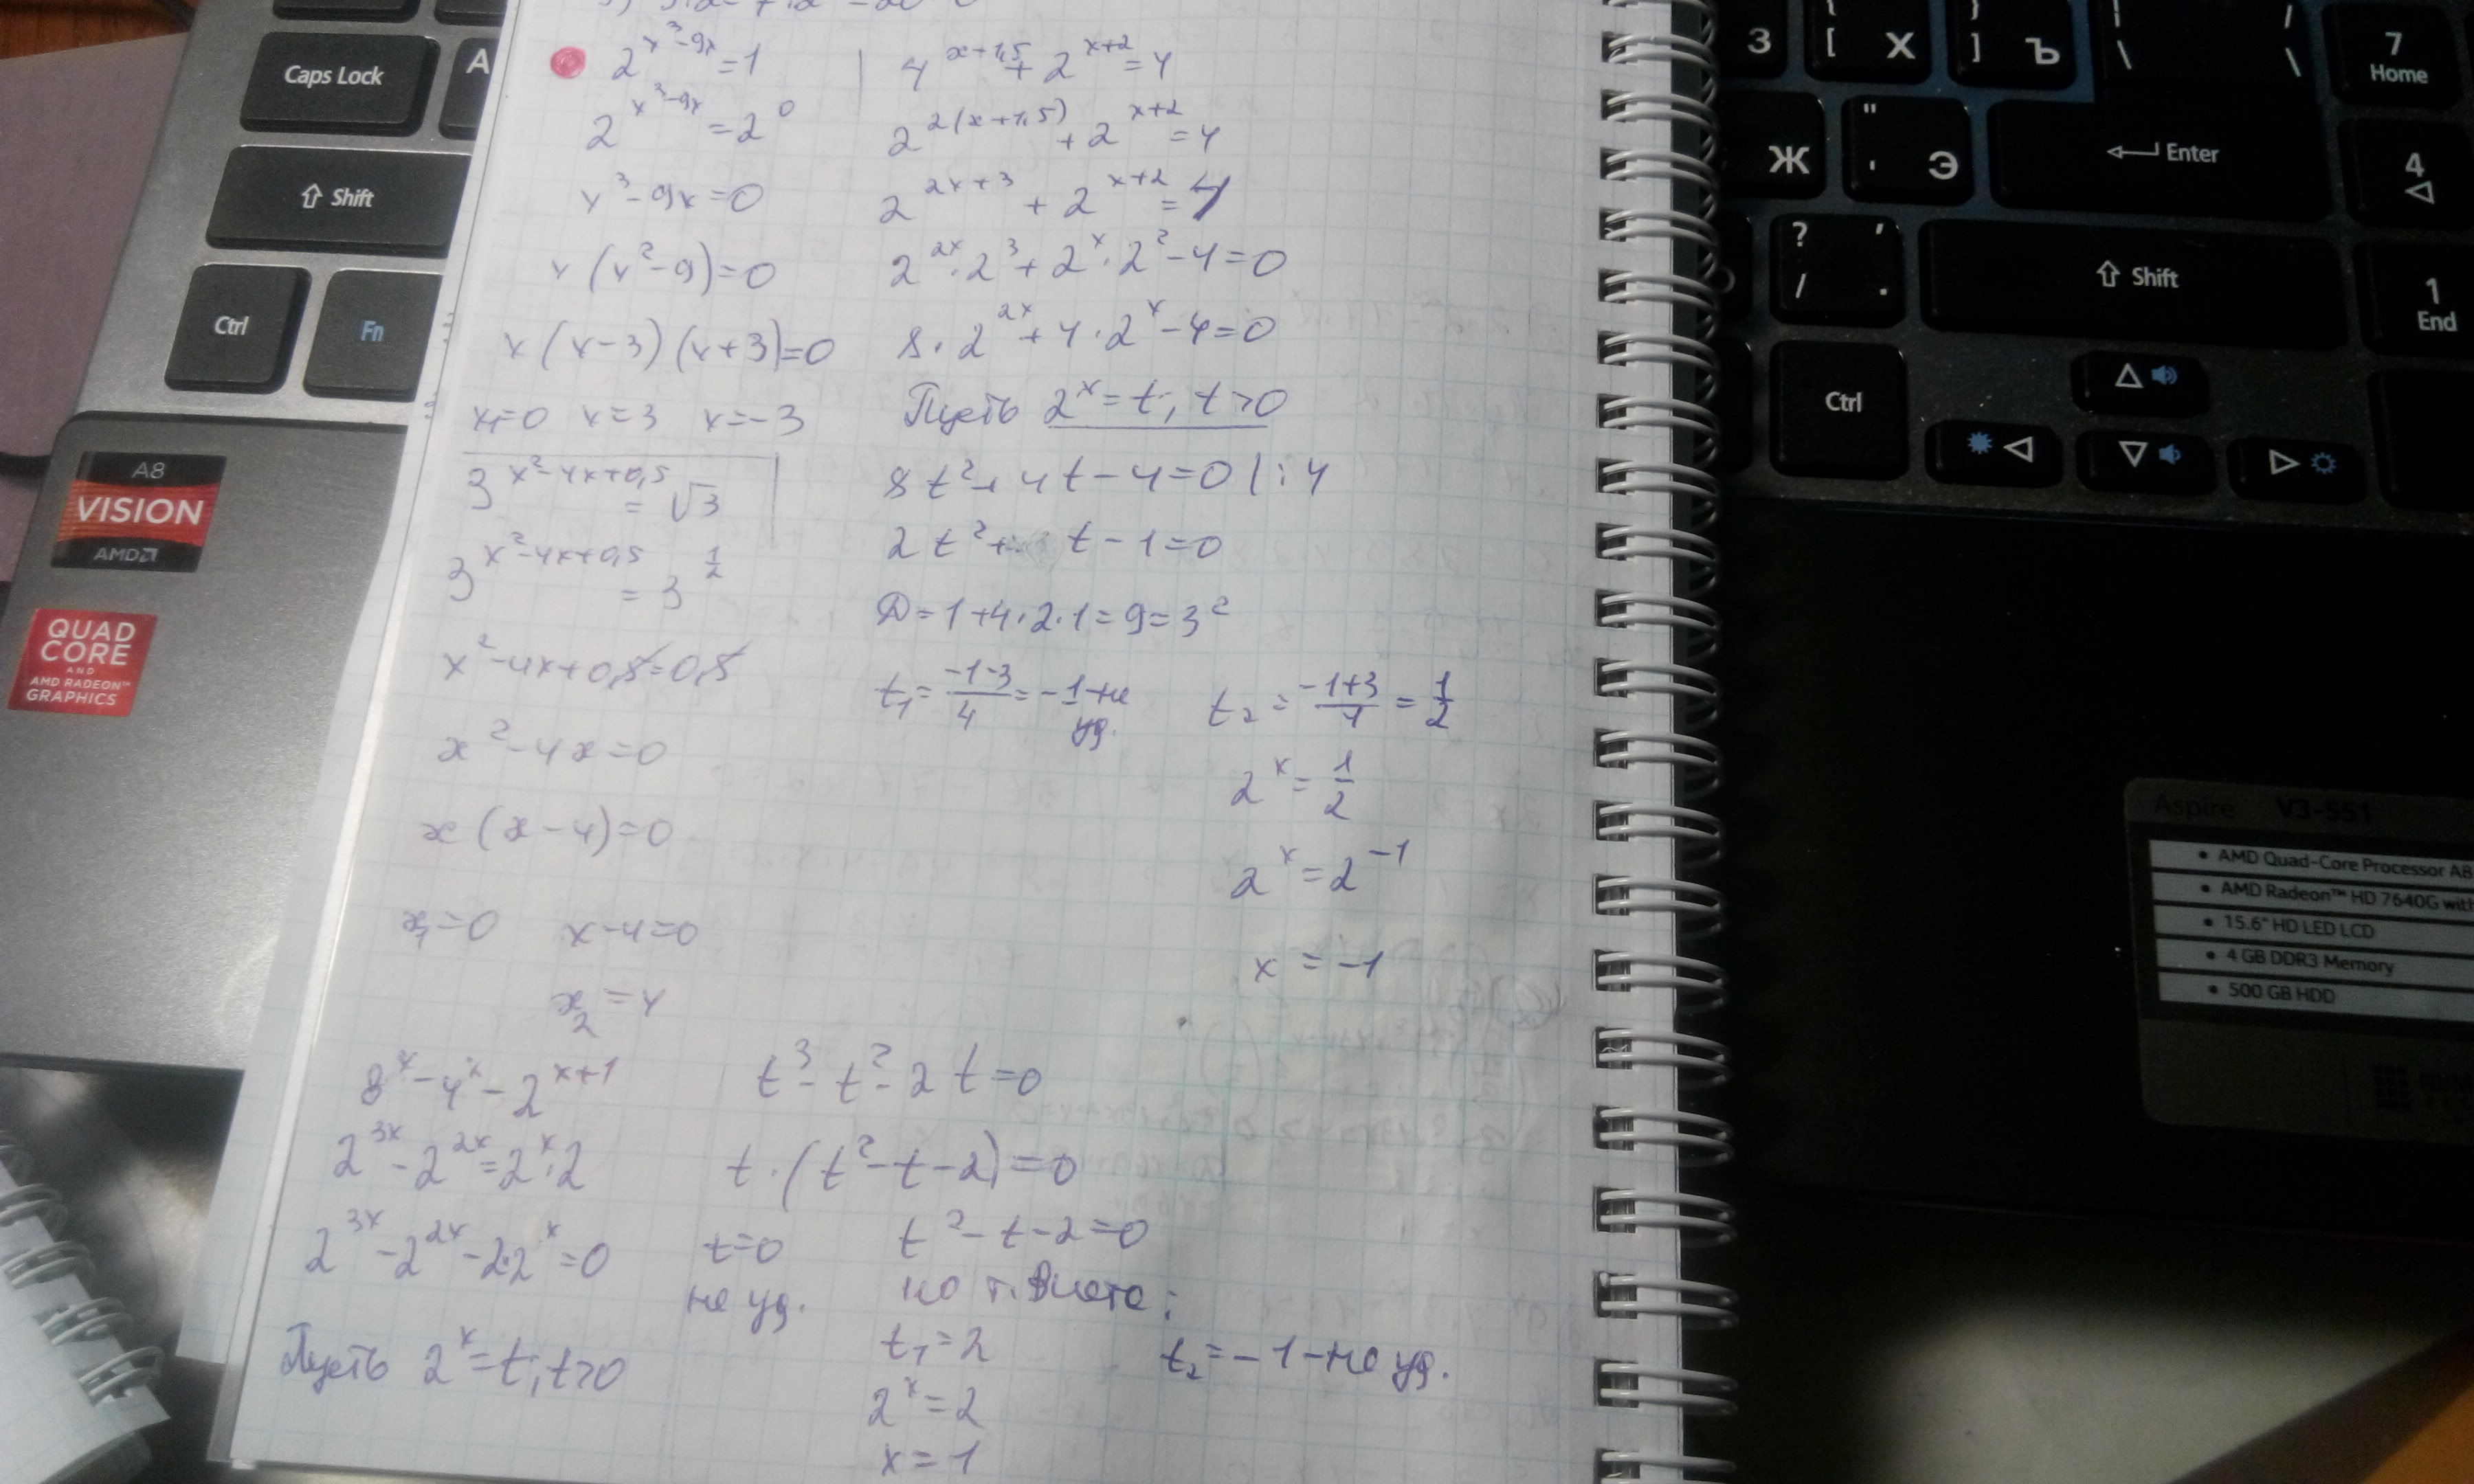 2^{x^3-9x}=1
2^{x^3-9x}=2^0
x^3-9x=0
x(x^2-9)=0
x(x-3)(x+3)=0
x=0 x=3 x=-3
3^{x^2-4x+0,5}=√3
3^{x^2-4x+0,5}=3^{1/2}
x^2-4x+0,5=0,5
x^2-4x=0
x(x-4)=0
x_1=0 x-4=0
x_2=4
4^{x+1,5}+2^{x+2}=4
2^{2(x+1,5)}+2^{x+2}=4
2^{2x+3}+2^{x+2}=4
2^{2x}·2^3+2^x·2^2-4=0
8·2^{2x}+4·2^x-4=0
Пусть 2^x=t; t>0
8t^2+4t-4=0 |:4
2t^2+t-1=0
D=1+4·2·1=9=3^2
t_1=\frac{-1-3}{4}=-1-не уд.
t_2=\frac{-1+3}{4}=\frac{1}{2}
2^x=\frac{1}{2}
2^x=2^{-1}
x=-1
8^x-4^x-2^{x+1}
2^{3x}-2^{2x}=2^x·2
2^{3x}-2^{2x}-2·2^x=0
Пусть 2^x=t; t>0
t^3-t^2-2t=0
t·(t^2-t-2)=0
t=0 t^2-t-2=0
не уд. по т. Виета:
t_1=2 t_2=-1-не уд.
2^x=2
x=1
Caps Lock
A
Shift
Ctrl
Fn
A8
VISION
AMD
QUAD
CORE
AND
AMD RADEON™
GRAPHICS
З
{ [ Х
} ] Ъ
| / \ \
7
Home
Ж
" ' Э
Enter
4
? , / .
Shift
1
End
Ctrl
Aspire V3-551
• AMD Quad-Core Processor A8
• AMD Radeon™ HD 7640G with
• 15.6" HD LED LCD
• 4 GB DDR3 Memory
• 500 GB HDD